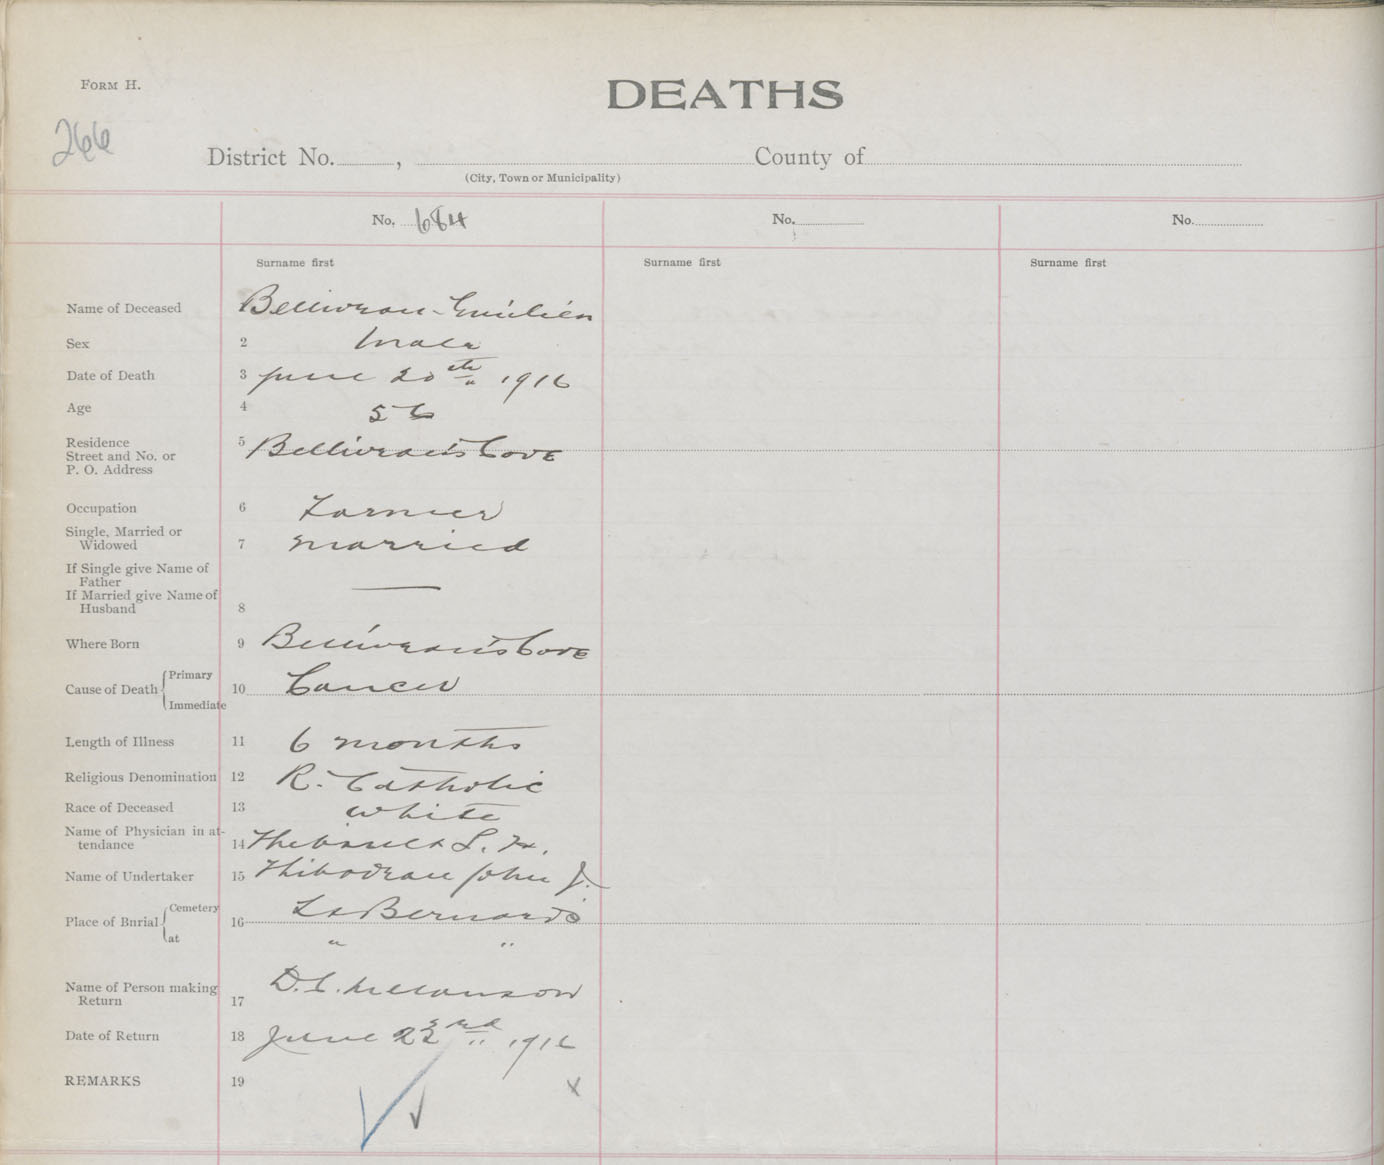 FORM H.
DEATHS
266
District No. , County of
(City, Town or Municipality)
No. 684 No. No.
Surname first Surname first Surname first
Name of Deceased Belliveau - Emilien
Sex 2 Male
Date of Death 3 June 20th 1916
Age 4 56
Residence
Street and No. or
P. O. Address 5 Belliveau's Cove
Occupation 6 Farmer
Single, Married or
Widowed 7 Married
If Single give Name of
Father
If Married give Name of
Husband 8 —
Where Born 9 Belliveau's Cove
Cause of Death Primary
Immediate 10 Cancer
Length of Illness 11 6 months
Religious Denomination 12 R. Catholic
Race of Deceased 13 White
Name of Physician in at-
tendance 14 L. H.
Name of Undertaker 15 Thibodeau John J.
Place of Burial Cemetery 16 St Bernard's
at " "
Name of Person making
Return 17 D. C. Melanson
Date of Return 18 June 1916
REMARKS 19
x